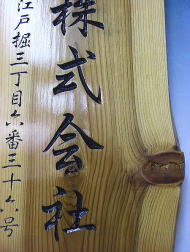 株式会社
江戸堀三丁目六番三十六号